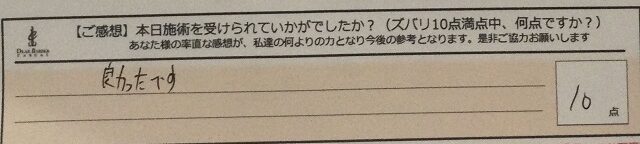 【ご感想】本日施術を受けられていかがでしたか？（ズバリ10点満点中、何点ですか？）
あなた様の率直な感想が、私達の何よりの力となり今後の参考となります。是非ご協力お願いします
良かったです
10点